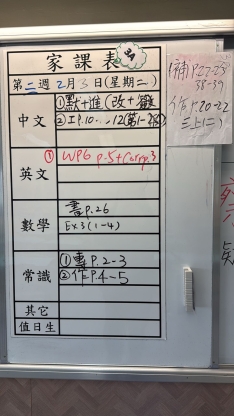 家課表
3A
第二週2月3日(星期二)
中文
①默+進(改+簽)
②工P.10、
12(第1-2段)
英文
① WP6 p.5+Corr p.3
數學
書p.26
Ex.3(1-4)
常識
①書P.2-3
②作P.4-5
其它
值日生
補P.22-23
38-39
作P.20-22